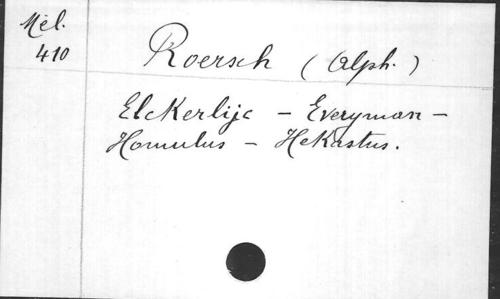 Mél.
410
Roersch (Alph.)
Elckerlijc – Everyman –
Homulus – Hekastus.